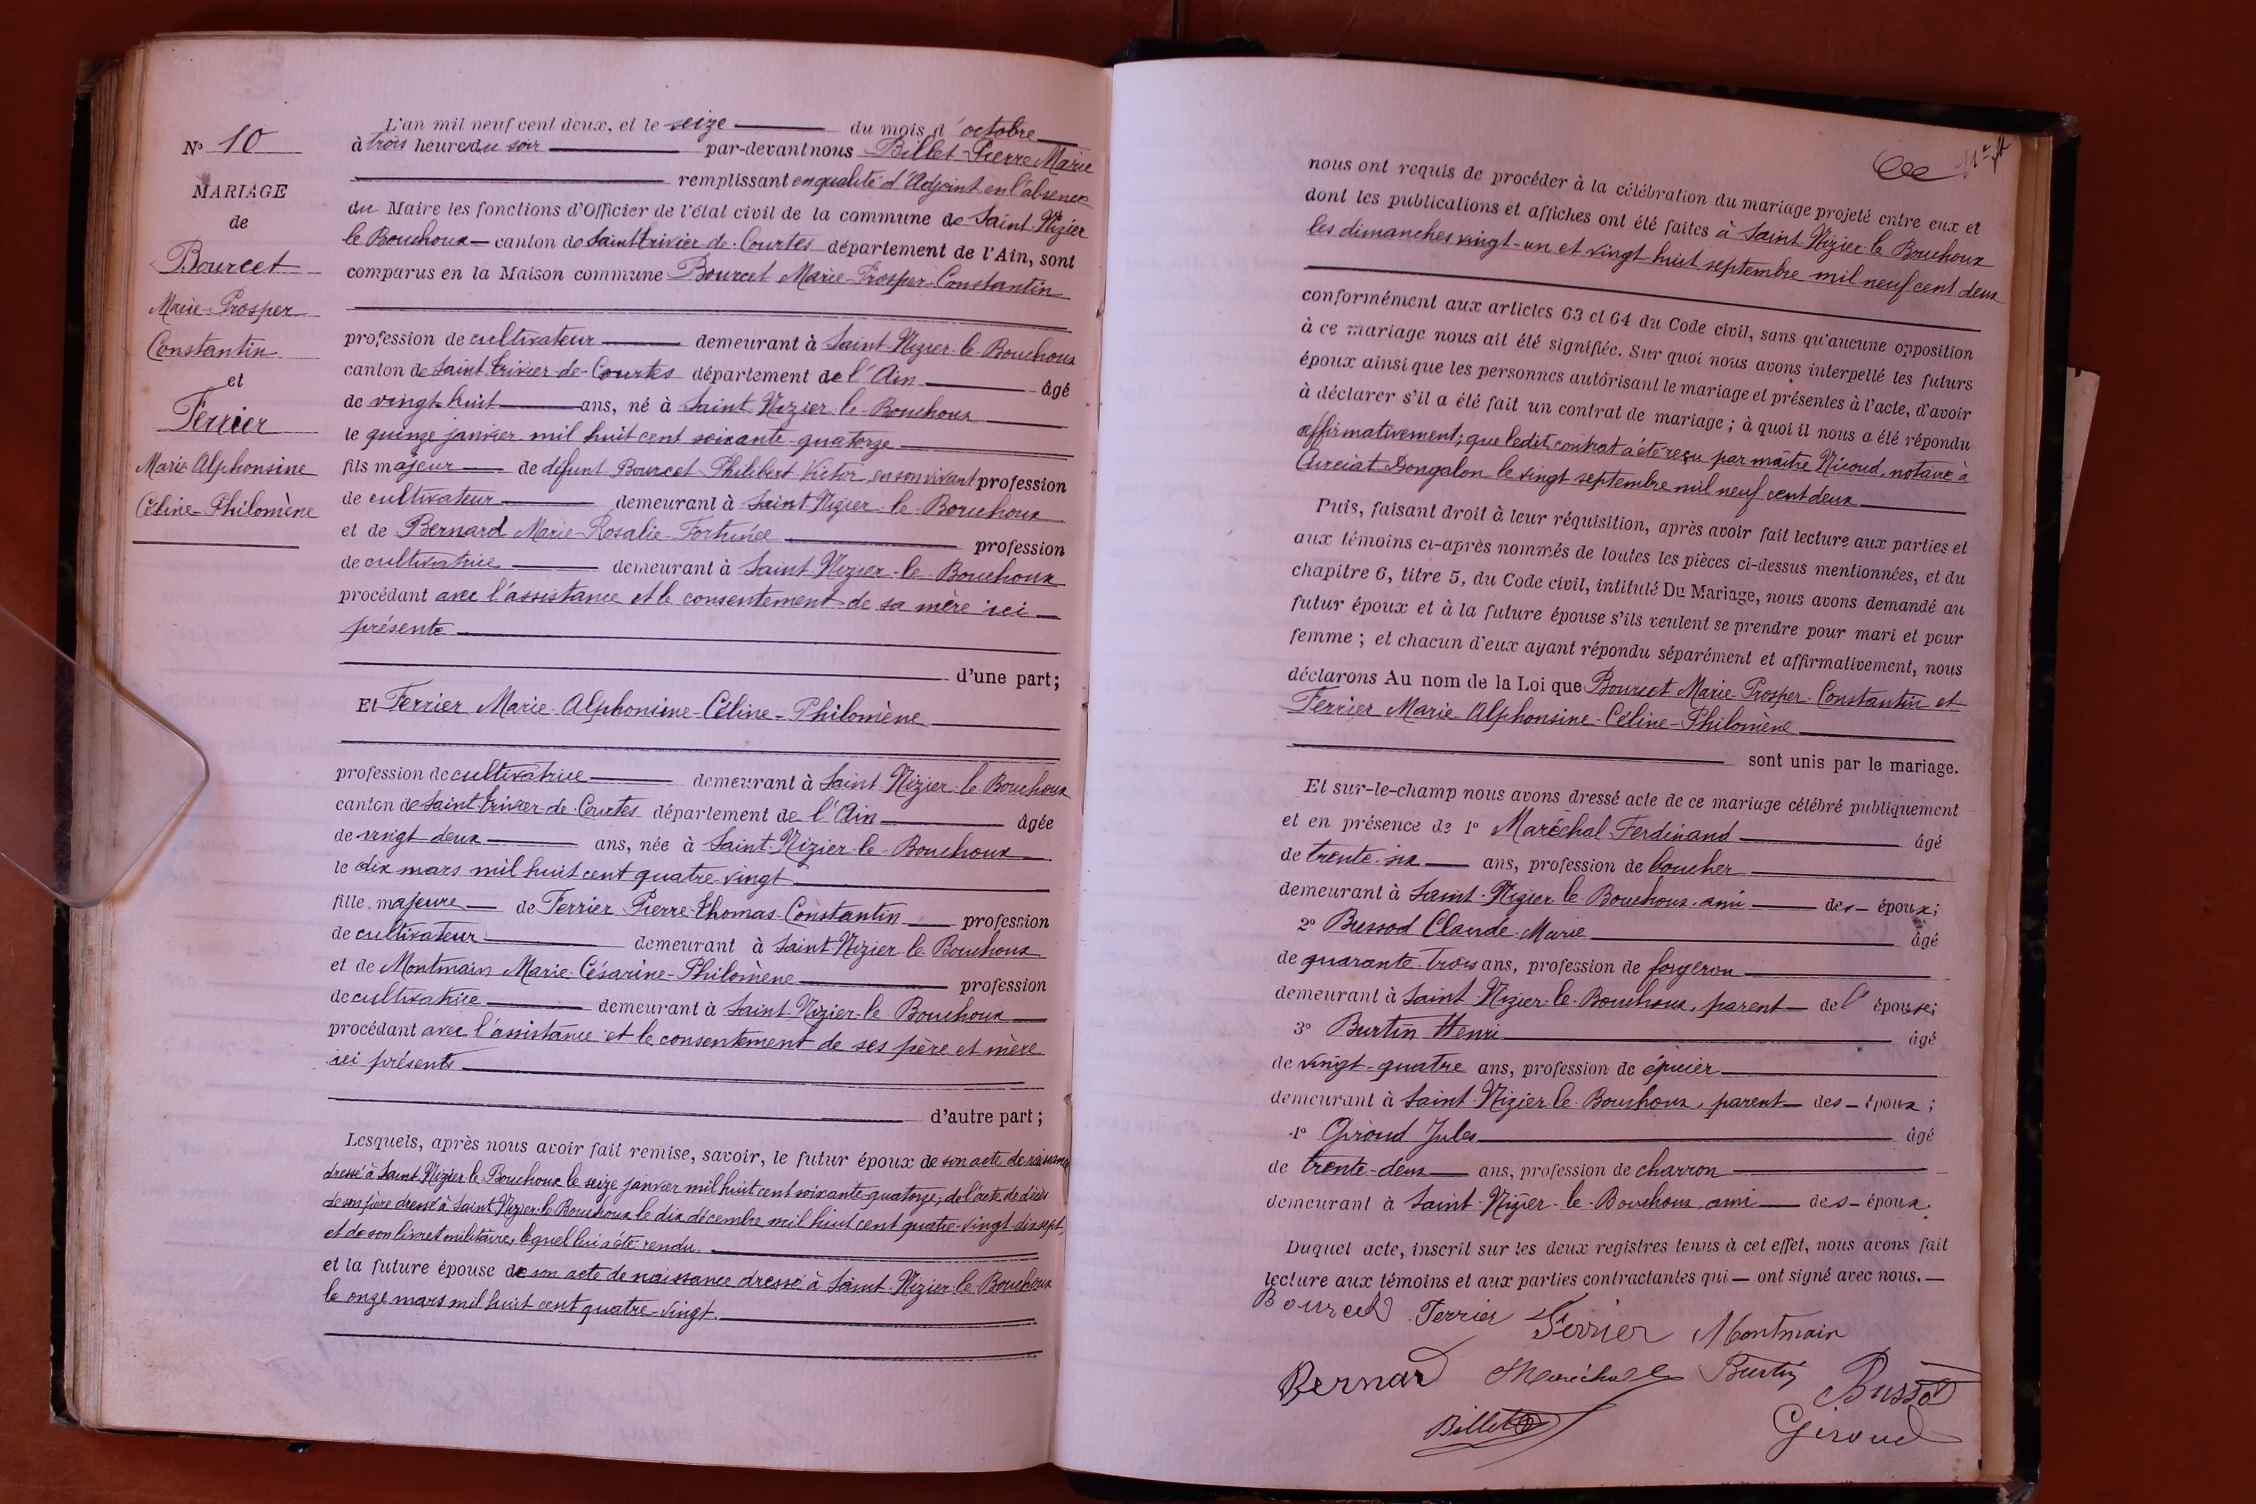 N° 10
MARIAGE
de
Bourcet
Marie-Prosper
Constantin
et
Ferrier
Marie Alphonsine
Céline-Philomène
L'an mil neuf cent deux, et le seize du mois d'octobre
à trois heures du soir par-devant nous Billet Pierre Marie
remplissant en qualité d'Adjoint en l'absence
du Maire les fonctions d'Officier de l'état civil de la commune de Saint-Nizier
le Bouchoux canton de Saint Trivier-de-Courtes département de l'Ain, sont
comparus en la Maison commune Bourcet Marie-Prosper-Constantin
profession de cultivateur demeurant à Saint Nizier-le-Bouchoux
canton de Saint-Trivier-de-Courtes département de l'Ain âgé
de vingt-huit ans, né à Saint Nizier-le-Bouchoux
le quinze janvier mil huit cent soixante-quatorze
fils majeur de défunt Bourcet Philibert Victor en son vivant profession
de cultivateur demeurant à Saint Nizier-le-Bouchoux
et de Bernard Marie-Rosalie-Fortunée profession
de cultivatrice demeurant à Saint-Nizier-le-Bouchoux
procédant avec l'assistance et le consentement de sa mère ici
présente
d'une part;
Et Ferrier Marie-Alphonsine-Céline-Philomène
profession de cultivatrice demeurant à Saint Nizier-le-Bouchoux
canton de Saint-Trivier-de-Courtes département de l'Ain âgée
de vingt deux ans, née à Saint-Nizier-le-Bouchoux
le dix mars mil huit cent quatre-vingt
fille majeure de Ferrier Pierre-Thomas-Constantin profession
de cultivateur demeurant à Saint Nizier le Bouchoux
et de Montmain Marie-Césarine-Philomène profession
de cultivatrice demeurant à Saint Nizier-le-Bouchoux
procédant avec l'assistance et le consentement de ses père et mère
ici présents
d'autre part;
Lesquels, après nous avoir fait remise, savoir, le futur époux de son acte de naissance
dressé à Saint Nizier le Bouchoux le seize janvier mil huit cent soixante-quatorze, de l'acte de décès
de son père dressé à Saint Nizier-le-Bouchoux le dix décembre mil huit cent quatre-vingt-dix sept,
et de son livret militaire, lequel lui a été rendu.
et la future épouse de son acte de naissance dressé à Saint-Nizier-le-Bouchoux
le onze mars mil huit cent quatre-vingt.
nous ont requis de procéder à la célébration du mariage projeté entre eux et
dont les publications et affiches ont été faites à Saint Nizier-le-Bouchoux
les dimanches vingt-un et vingt huit septembre mil neuf cent deux
conformément aux articles 63 et 64 du Code civil, sans qu'aucune opposition
à ce mariage nous ait été signifiée. Sur quoi nous avons interpellé les futurs
époux ainsi que les personnes autorisant le mariage et présentes à l'acte, d'avoir
à déclarer s'il a été fait un contrat de mariage; à quoi il nous a été répondu
affirmativement; que ledit contrat a été reçu par maître Nicoud, notaire à
Curciat Dongalon le vingt septembre mil neuf cent deux
Puis, faisant droit à leur réquisition, après avoir fait lecture aux parties et
aux témoins ci-après nommés de toutes les pièces ci-dessus mentionnées, et du
chapitre 6, titre 5, du Code civil, intitulé Du Mariage, nous avons demandé au
futur époux et à la future épouse s'ils veulent se prendre pour mari et pour
femme; et chacun d'eux ayant répondu séparément et affirmativement, nous
déclarons Au nom de la Loi que Bourcet Marie-Prosper-Constantin et
Ferrier Marie Alphonsine-Céline-Philomène
sont unis par le mariage.
Et sur-le-champ nous avons dressé acte de ce mariage célébré publiquement
et en présence de 1° Maréchal Ferdinand âgé
de trente-six ans, profession de boucher
demeurant à Saint-Nizier le Bouchoux. ami des époux;
2° Bussod Claude-Marie âgé
de quarante-trois ans, profession de forgeron
demeurant à Saint Nizier-le-Bouchoux, parent de l'épouse;
3° Burtin Henri âgé
de vingt-quatre ans, profession de épicier
demeurant à Saint-Nizier-le-Bouchoux, parent des époux;
4° Giroud Jules âgé
de trente-deux ans, profession de charron
demeurant à Saint-Nizier-le-Bouchoux ami des époux.
Duquel acte, inscrit sur les deux registres tenus à cet effet, nous avons fait
lecture aux témoins et aux parties contractantes qui ont signé avec nous.
Bourcet Ferrier Ferrier Montmain
Bernard Maréchal Burtin Bussod
Billet Giroud